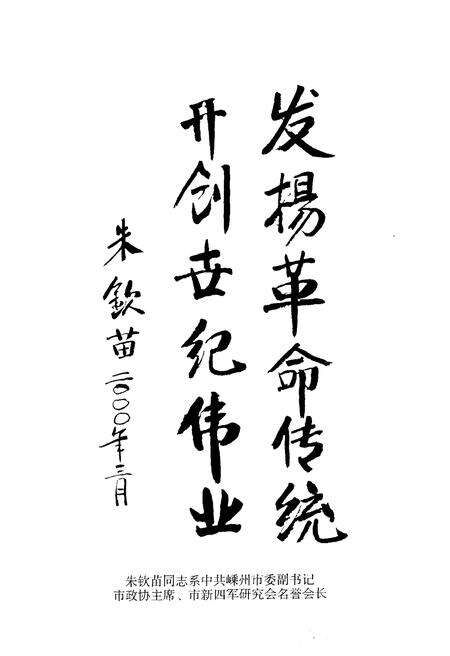 发揚革命传统
开创世纪伟业
朱钦苗二〇〇〇年三月
朱钦苗同志系中共嵊州市委副书记
市政协主席、市新四军研究会名誉会长